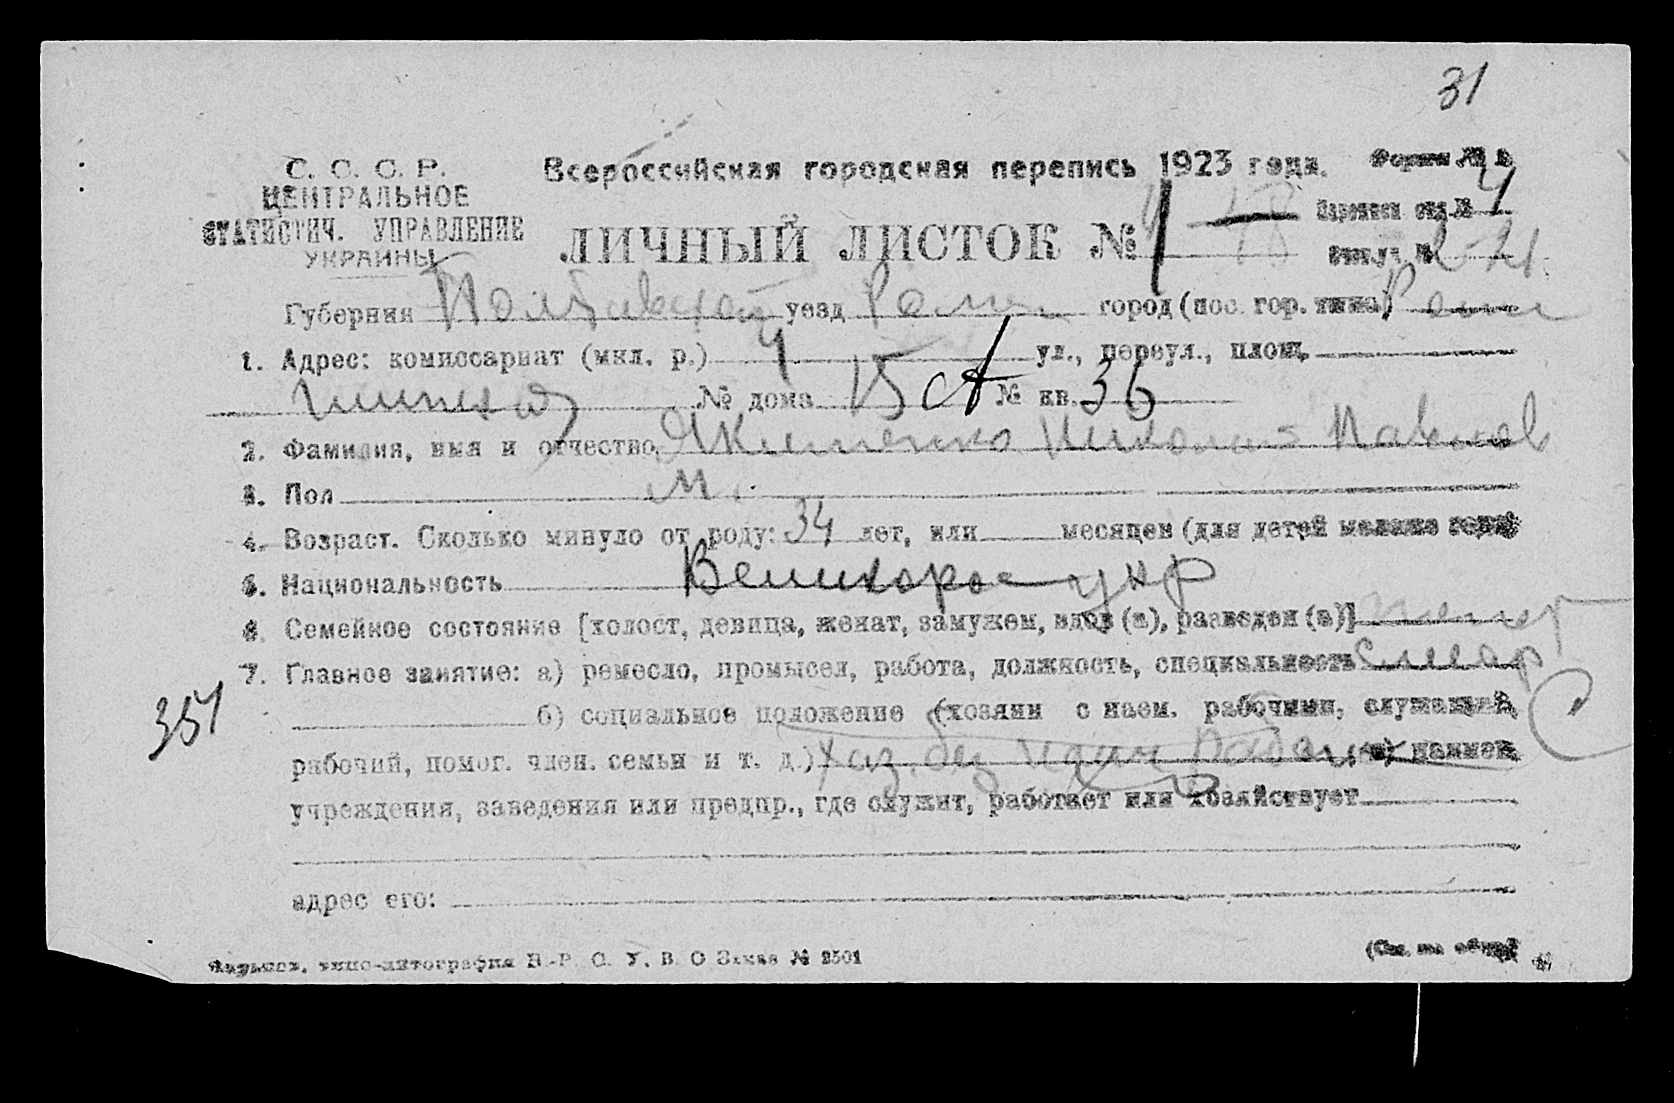 31
С. С. С. Р.
ЦЕНТРАЛЬНОЕ
СТАТИСТИЧ. УПРАВЛЕНИЕ
УКРАИНЫ
Всероссийская городская перепись 1923 года.
ЛИЧНЫЙ ЛИСТОК № 1
Губерния Полтавской уезд Ромен город (пос. гор. типа) Ромн
1. Адрес: комиссариат (мил. р.) 4 ул., переул., площ.
№ дома 15 № кв. 36
2. Фамилия, имя и отчество Якименко Николай Павлов
3. Пол м.
4. Возраст. Сколько минуло от роду: 34 лет, или месяцев (для детей моложе года)
5. Национальность Великорос укр
6. Семейное состояние [холост, девица, женат, замужем, вдов (а), разведен (а)] женат
7. Главное занятие: а) ремесло, промысел, работа, должность, специальность Слесар
351
б) социальное положение (хозяин с наем. рабочими, служащий,
рабочий, помог. член. семьи и т. д.) хаз. без наим рабоч наимен.
учреждения, заведения или предпр., где служит, работает или хозяйствует
адрес его:
Харьков, типо-литография В.-Р. С. У. В. О Заказ № 2501
(См. на обор.)